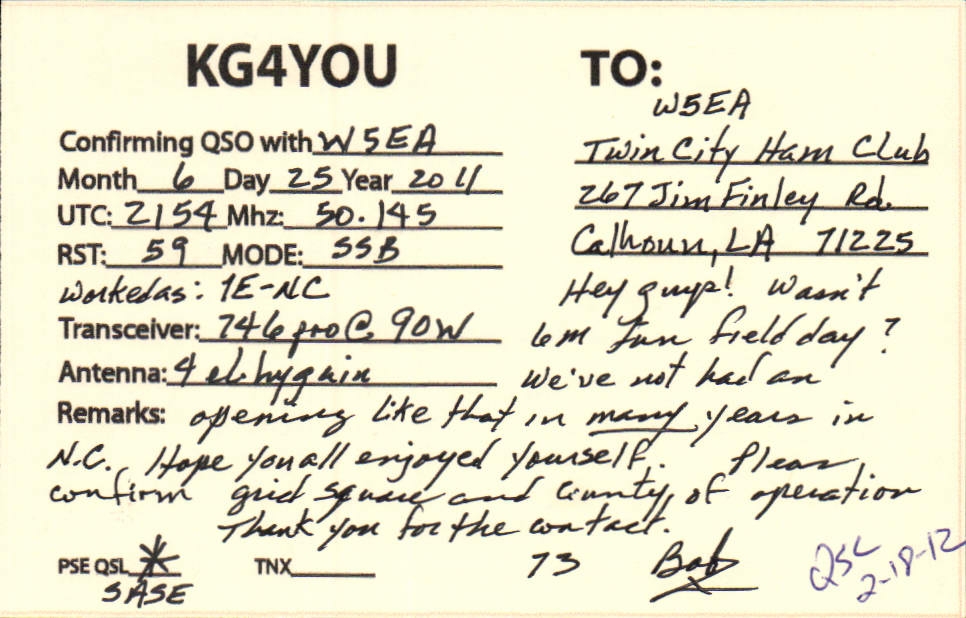 KG4YOU
TO:
W5EA
Confirming QSO with W5EA
Twin City Ham Club
Month 6 Day 25 Year 2011
267 Jim Finley Rd.
UTC: 2154 Mhz: 50.145
Calhoun, LA 71225
RST: 59 MODE: SSB
Worked as: 1E-NC
Hey guys! Wasn't
Transceiver: 746 pro @ 90W
6m fun field day?
Antenna: 4 el hygain
We've not had an
Remarks: opening like that in many years in
N.C. Hope you all enjoyed yourself. Please
confirm grid square and County of operation
Thank you for the contact.
PSE QSL * TNX
SASE
73 Bob
QSL
2-18-12